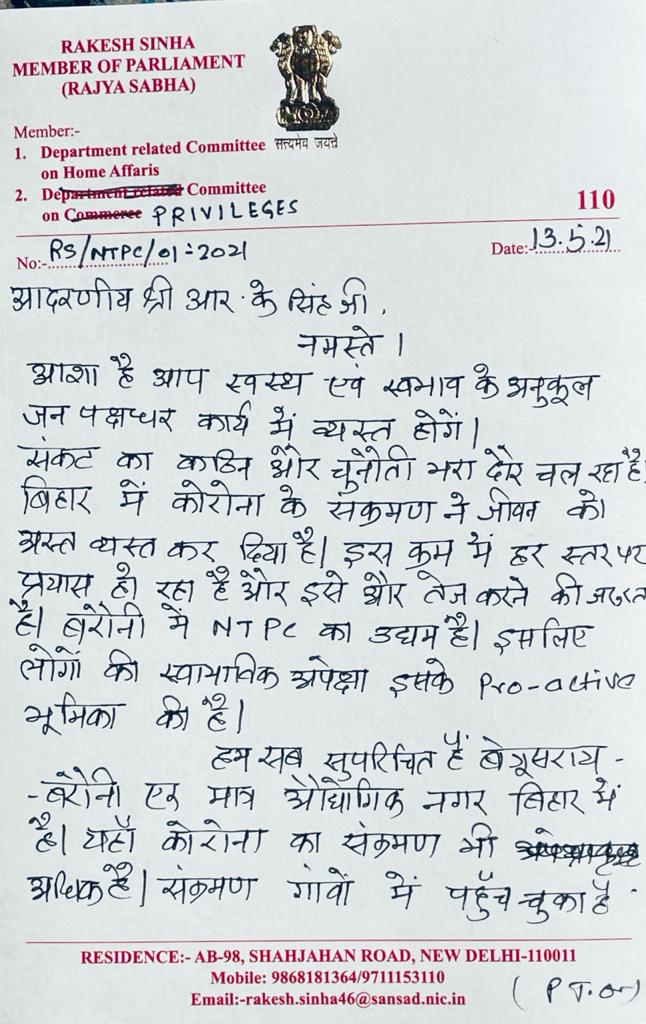 RAKESH SINHA
MEMBER OF PARLIAMENT
(RAJYA SABHA)
सत्यमेव जयते
Member:-
1. Department related Committee
on Home Affaris
2. Department related Committee
on Commerce PRIVILEGES
110
No:- RS/NTPC/01-2021
Date:- 13.5.21
आदरणीय श्री आर. के सिंह जी,
नमस्ते ।
आशा है आप स्वस्थ एवं स्वभाव के अनुकूल
जन पक्षधर कार्य में व्यस्त होगें।
संकट का कठिन और चुनौती भरा दौर चल रहा है
बिहार में कोरोना के संक्रमण ने जीवन को
अस्त व्यस्त कर दिया है। इस क्रम में हर स्तर पर
प्रयास हो रहा है और इसे और तेज करने की जरूरत
है। बरौनी में NTPC का उद्यम है। इसलिए
लोगों की स्वाभाविक अपेक्षा इसके Pro-active
भूमिका की है।
हम सब सुपरिचित हैं बेगूसराय -
- बरौनी एक मात्र औद्योगिक नगर बिहार में
है। यहाँ कोरोना का संक्रमण भी
अधिक है। संक्रमण गांवों में पहुँच चुका है
RESIDENCE:- AB-98, SHAHJAHAN ROAD, NEW DELHI-110011
Mobile: 9868181364/9711153110
Email:-rakesh.sinha46@sansad.nic.in
(P T.O)